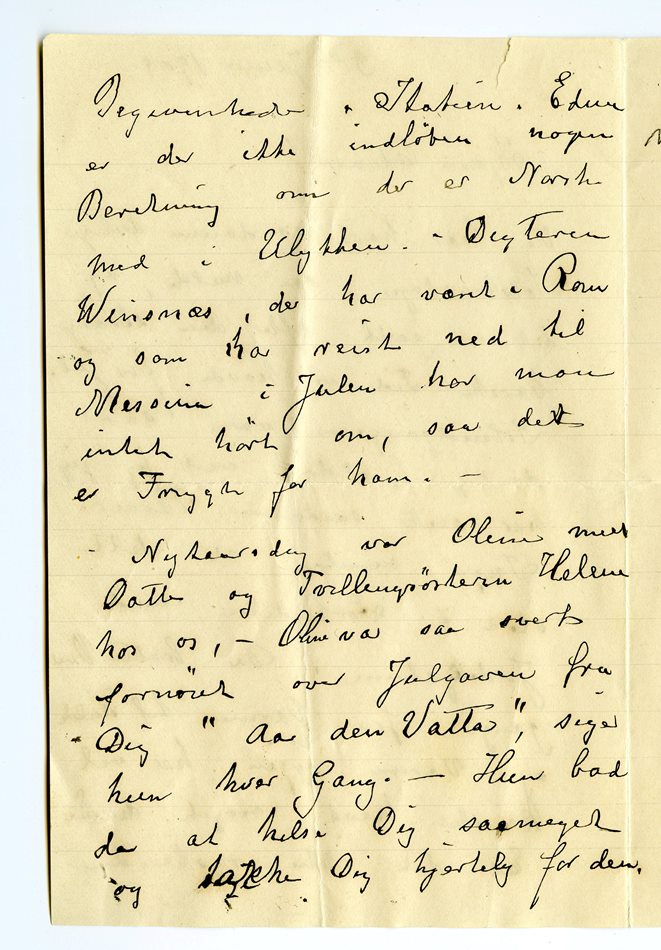 Begivenheder i Italien. Endnu
er der ikke indløben nogen
Beretning om der er Norske
med i Ulykken. - Digteren
Winsnæs, der har været i Rom
og som har reist ned til
Messina i Julen har man
intet hört om, saa det
er Frygt for ham. -
- Nytaarsdag var Oline med
Datter og Tvillingsösteren Helene
hos os, - Oline var saa svert
fornöiet over Julgaven fra
Dig " Aa den Vatta", siger
hun hver Gang. - Hun bad
da at helse Dig saameget
og takke Dig hjertelig for den.